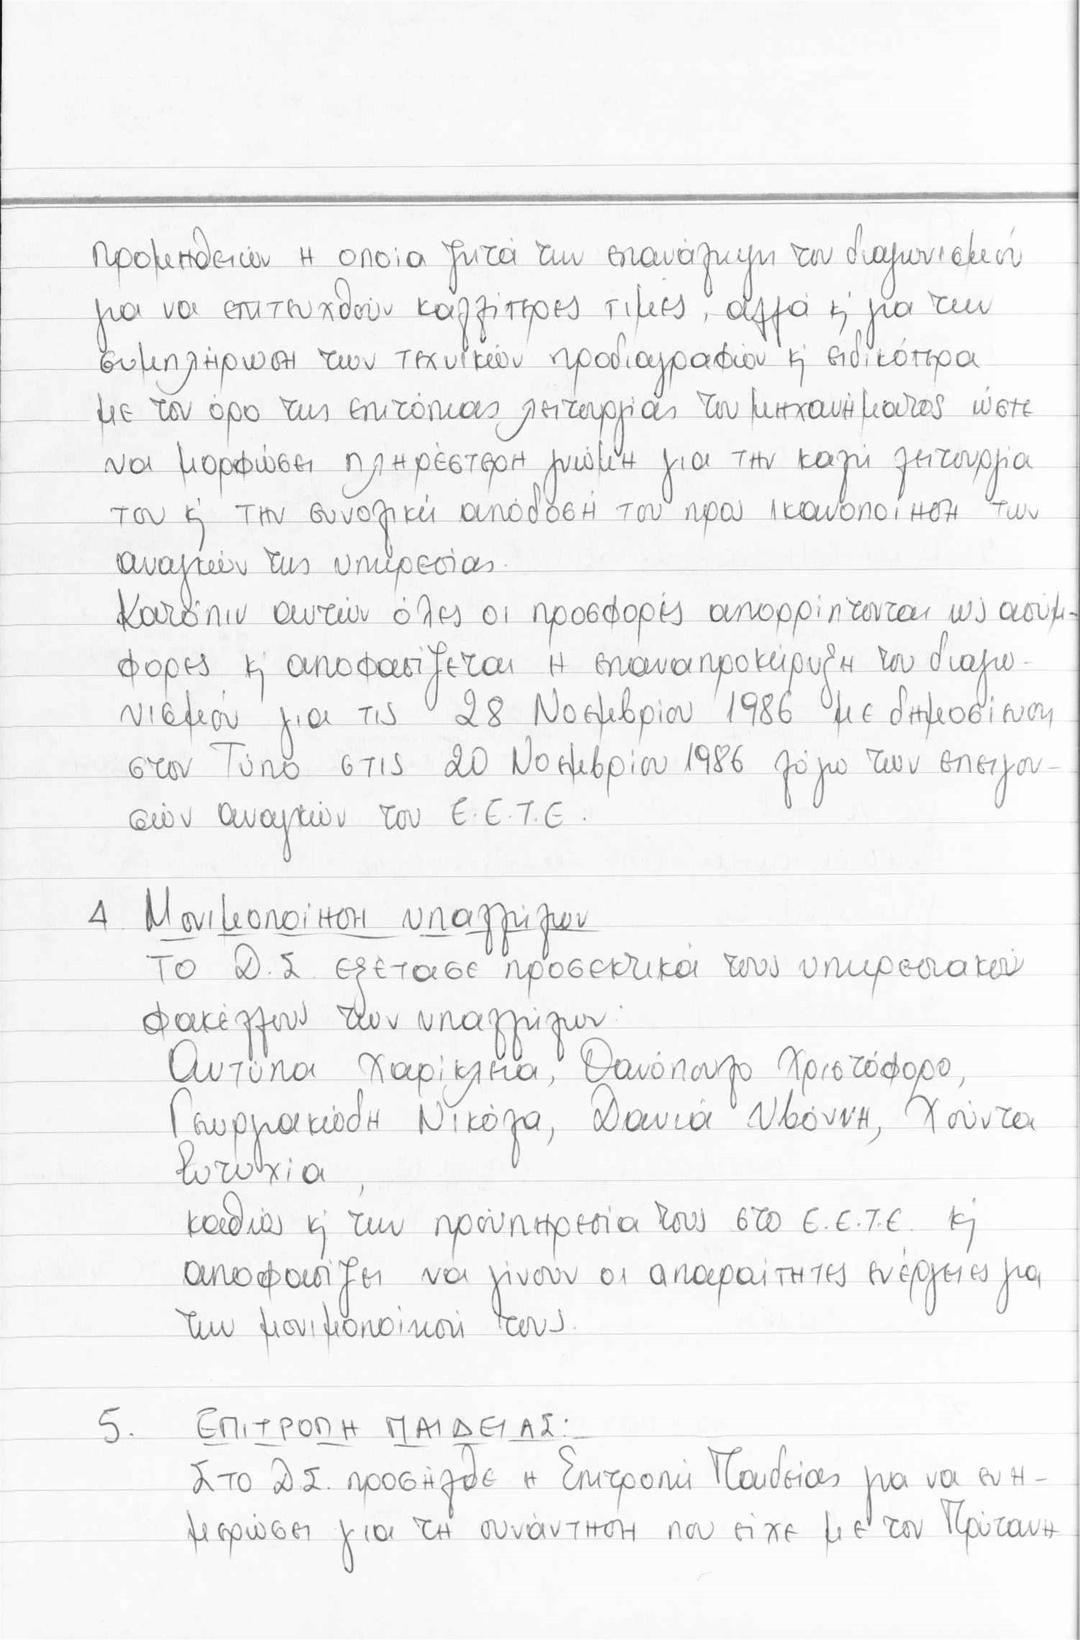 προμηθειών η οποία ζητά την επανάληψη του διαγωνισμού
για να επιτευχθούν καλλίτερες τιμές, αλλά κ́ για την
συμπλήρωση των τεχνικών προδιαγραφών κ́ ειδικότερα
με τον όρο της επιτόπιας λειτουργίας του μηχανήματος ώστε
να μορφώσει πληρέστερη γνώμη για την καλή λειτουργία
του κ́ την συνολική απόδοσή του προς ικανοποίηση των
αναγκών της υπηρεσίας.
Κατόπιν αυτών όλες οι προσφορές απορρίπτονται ως ασύμ-
φορες κ́ αποφασίζεται η επαναπροκήρυξη του διαγω-
νισμού για τις 28 Νοεμβρίου 1986 με δημοσίευση
στον Τύπο στις 20 Νοεμβρίου 1986 λόγω των επειγου-
σών αναγκών του Ε.Ε.Τ.Ε.
4 Μονιμοποίηση υπαλλήλων
Το Δ.Σ. εξέτασε προσεκτικά τους υπηρεσιακούς
φακέλλους των υπαλλήλων:
Αντύπα Χαρίκλεια, Θανόπουλο Χριστόφορο,
Γεωργακώδη Νικόλα, Δανιά Υβόννη, Χούντα
Ευτυχία,
καθώς κ́ την προϋπηρεσία τους στο Ε.Ε.Τ.Ε. κ́
αποφασίζει να γίνουν οι απαραίτητες ενέργειες για
την μονιμοποίησή τους.
5. ΕΠΙΤΡΟΠΗ ΠΑΙΔΕΙΑΣ:
Στο Δ.Σ. προσήλθε η Επιτροπή Παιδείας για να ενη-
μερώσει για τη συνάντηση που είχε με τον Πρύτανη